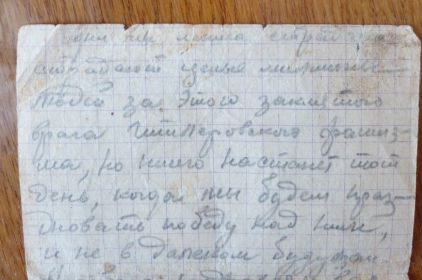 страдают целые миллионы
людей за этого заклятого
врага гитлеровского фашиз-
ма, но ничего настанет тот
день, когда мы будем праз-
дновать победу над ним,
и не в далеком будущем.